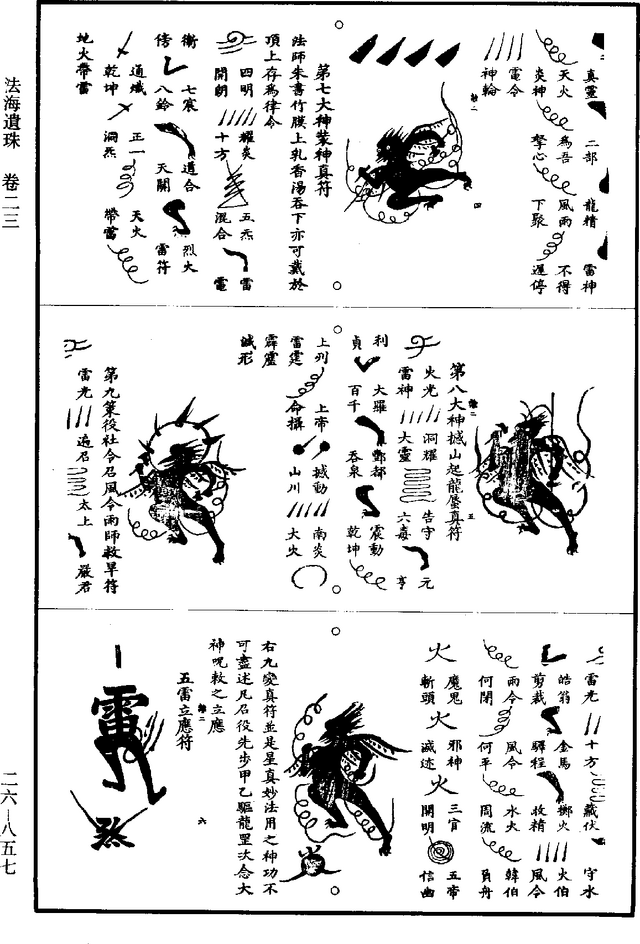 真靈 二部 龍精 雷神
天火 為吾 風雨 不得
炎神 擊心 下聚 遲停
電令
神輪
四
第七大神裝神真符
法師朱書竹膜上乳香湯吞下亦可戴於
頂上存為律令
四明 耀炎 五炁 雷
開朗 十方 混合 電
衝 七宸 道合 烈火
傍 八鈴 天關 雷符
通熾 正一 天火
乾坤 洞炁 帶雷
地火帶雷
五
第八大神撼山起龍蜃真符
火光 洞耀 告守 元
雷神 大靈 六毒 亨
利 大羅 酆都 震動
貞 百千 吞泉 乾坤
上列 上帝 撼動 南炎
雷霆 命攝 山川 大火
霹靂
誠形
第九策役社令召風令雨師救旱符
雷光 遍召 太上 嚴君
雷光 十方 藏伏 守水
皓翁 金馬 擲火 火伯
剪裁 驛程 收精 風令
雨令 風令 水火 韓伯
何閉 何平 周流 負舟
火 魔鬼 火 邪神 火 三官 五帝
斬頭 滅迹 開明 信幽
右九變真符並是星真妙法用之神功不
可盡述凡召役先步甲乙驅龍罡次念大
神咒敕之立應
六
五雷立應符
雷
法海遺珠 卷二三
二六—八五七